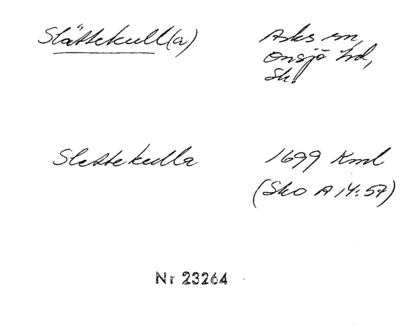 Slättekull(a) Asks sn,
Onsjö hd,
Sk.
Slettekulla 1699 Kml
(Sko A 14:57)
Nr 23264